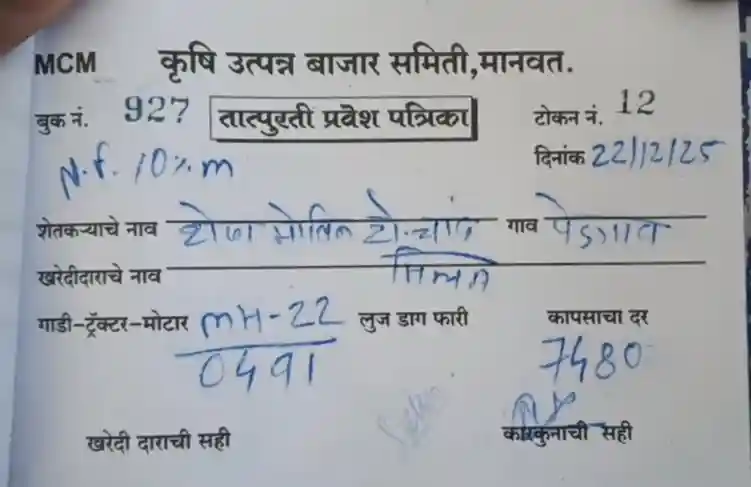 MCM कृषि उत्पन्न बाजार समिती,मानवत.
बुक नं. 927 तात्पुरती प्रवेश पत्रिका टोकन नं. 12
N.f. 10%m दिनांक 22/12/25
शेतकऱ्याचे नाव शेख मोबिन शे.चांद गाव पेडगाव
खरेदीदाराचे नाव
गाडी-ट्रॅक्टर-मोटार MH-22 लुज डाग फारी कापसाचा दर
0491 7480
खरेदी दाराची सही कारकुनाची सही